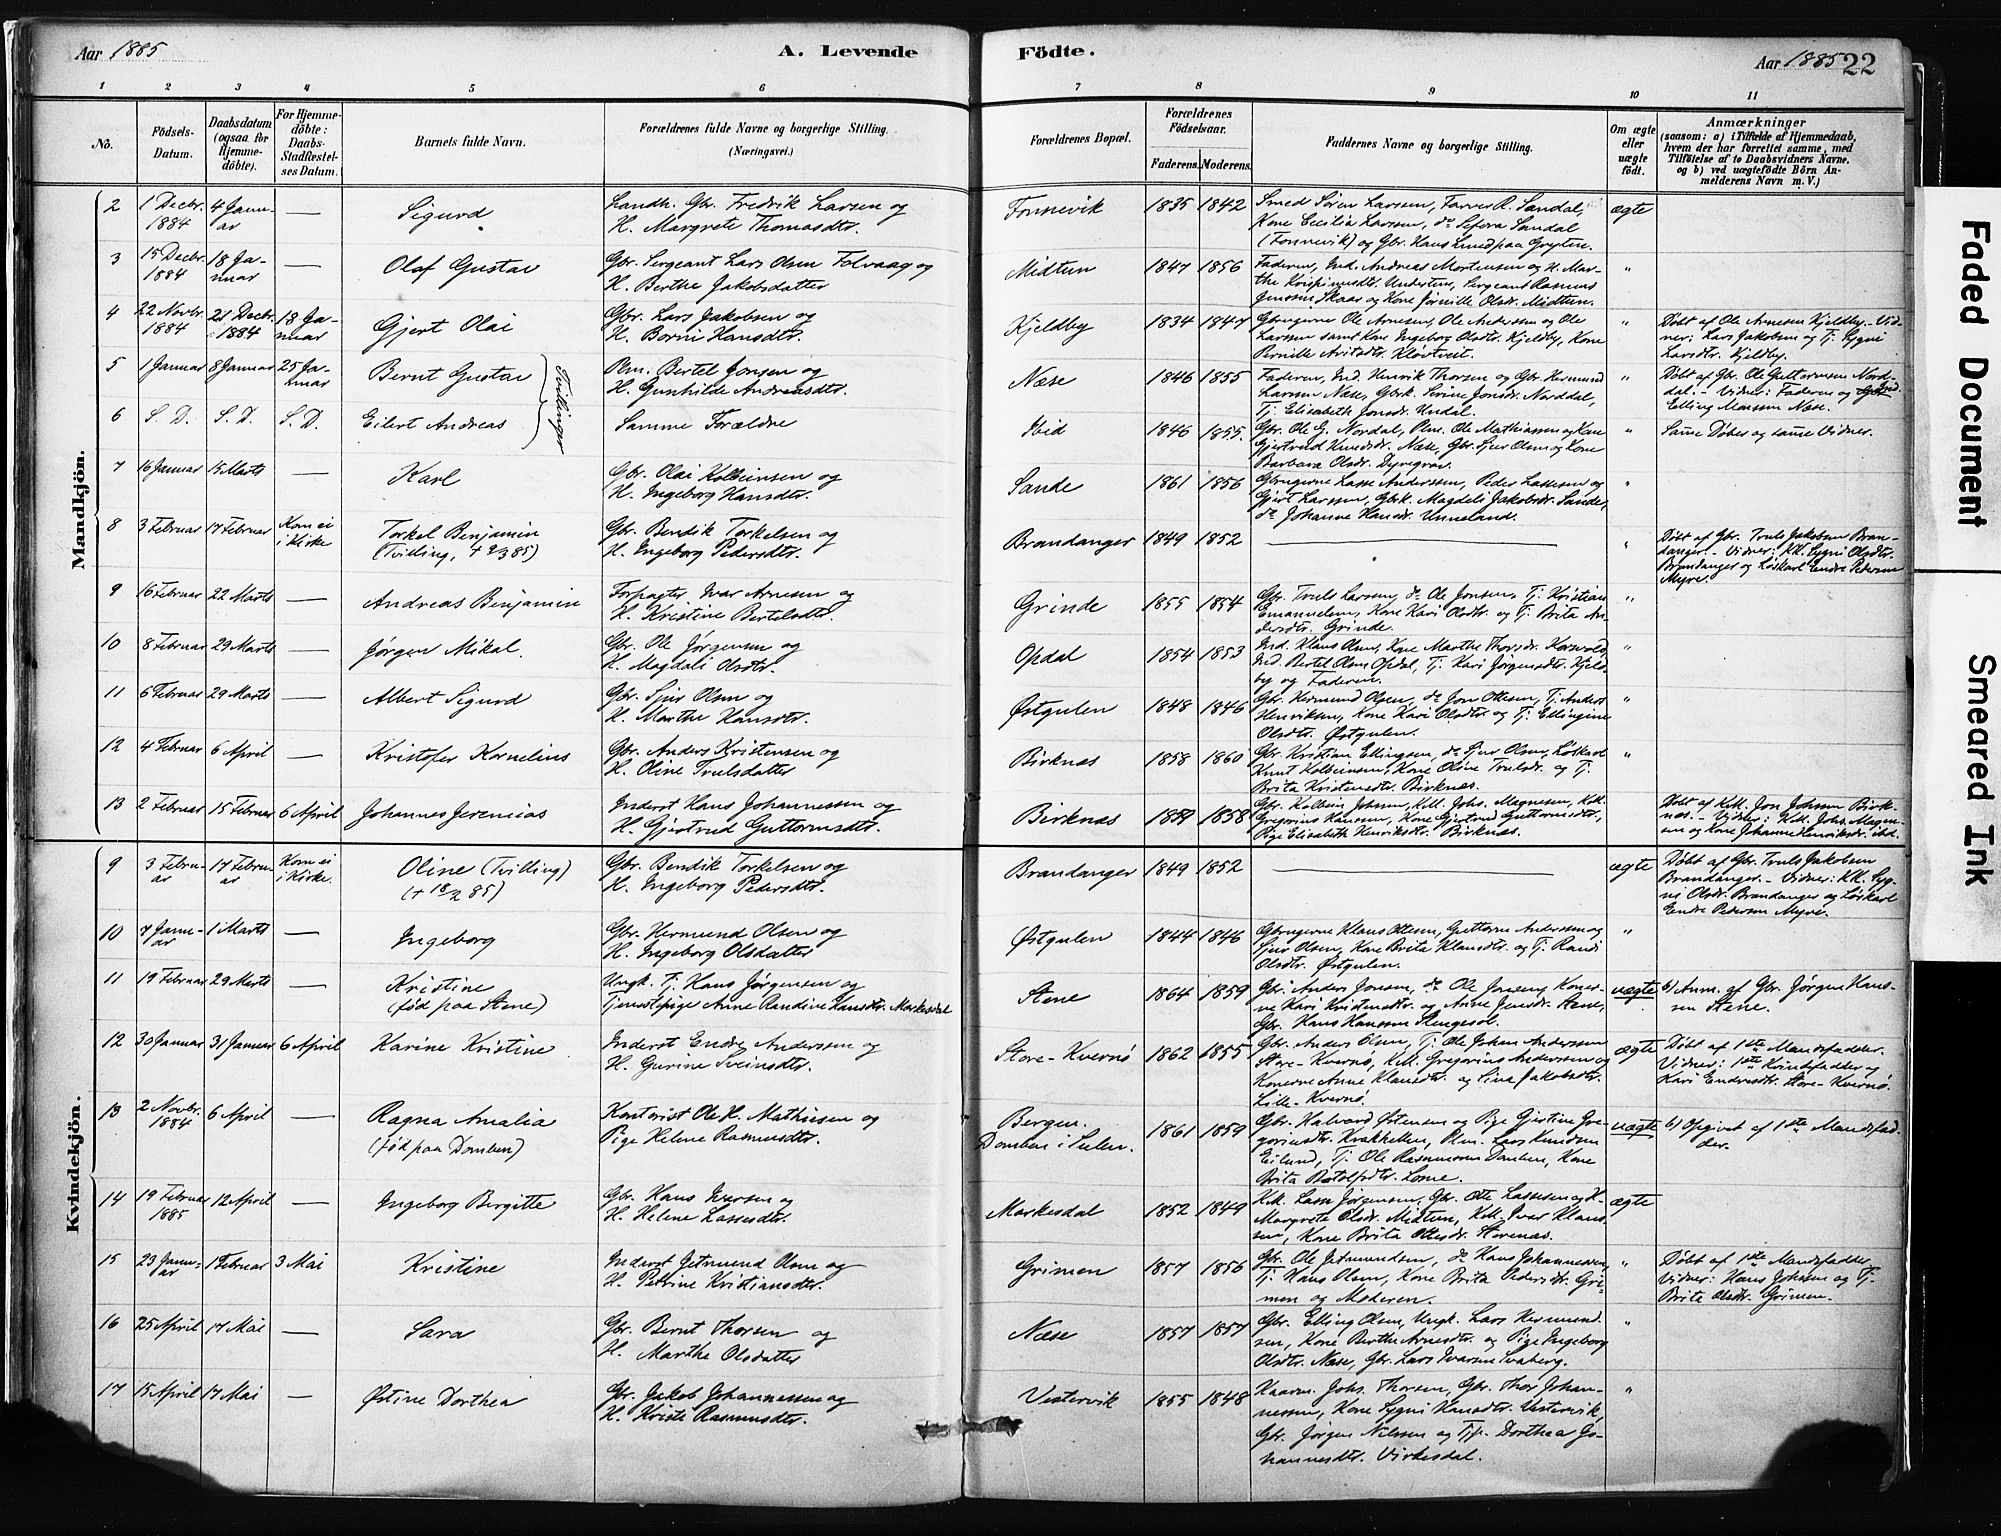 Aar 1885
A. Levende
Födte.
Aar 1885
22
1 2 3 4 5 6 7 8 9 10 11
No.
Födsels-
Datum.
Daabsdatum
(ogsaa for
Hjemme-
döbte).
For Hjemme-
döbte:
Daabs-
Stadfæstel-
ses Datum.
Barnets fulde Navn.
Forældrenes fulde Navne og borgerlige Stilling.
(Næringsvei.)
Forældrenes Bopæl.
Forældrenes
Födselsaar.
Faderens. Moderens.
Faddernes Navne og borgerlige Stilling.
Om ægte
eller
uægte
födt.
Anmærkninger
(saasom: a) i Tilfælde af Hjemmedaab,
hvem der har forrettet samme, med
Tilföielse af to Daabsvidners Navne,
og b) ved uægtefödte Börn An-
melderens Navn m. V.)
Mandkjön.
2
1 Decbr.
1884
4 Janu-
ar
—
Sigurd
Landh. Gbr. Fredrik Larsen og
H. Margrete Thomasdtr.
Fonnevik
1835 1842
Smed Sören Larsen, Farver R. Sandal,
Kone Cecilia Larsen, do Sefora Sandal
(Fonnevik) og Gbr. Hans Lund paa Grytten.
ægte
3
15 Decbr.
1884
18 Ja-
nuar
Olaf Gustav
Gbr. Sergeant Lars Olsen Folvaag og
H. Berthe Jakobsdatter
Midtun
1847 1856
Faderen, Ind. Andreas Mortensen og H. Mar-
the Krispinusdtr. Undertun, Sergeant Rasmus
Jenssen Skaar og Kone Jörnille Olsdr. Midttun.
"
4
22 Novbr.
1884
21 Decbr.
1884
18 Ja-
nuar
Gjert Olai
Gbr. Lars Jakobsen og
H. Borni Hansdtr.
Kjeldby
1834 1847
Gbrugerne Ole Arnesen, Ole Anderssen og Ole
Larssen samt Kone Ingeborg Olsdtr. Kjeldby, Kone
Pernille Avistadtr. Klövtveit.
"
Döbt af Ole Arnesen Kjeldby. Vid-
ner: Lars Jakobsen og Tj. Sygni
Larsdtr. Kjeldby.
5
1 Januar
8 Januar
25 Ja-
nuar
Bernt Gustav
Tvillinger
Plm. Bertel Jonsen og
H. Gunhilde Andreasdtr.
Næse
1846 1855
Faderen, Ind. Henrik Thorsen og Gbr. Hermund
Larssen Næse, Gbrk. Sirine Jonsdr. Norddal,
Tj. Elisabeth Jonsdr. Undal.
"
Döbt af Gbr. Ole Guttormsen Nord-
dal. - Vidner: Faderen og Ind.
Elling Monssen Næse.
6
S. D. S. D. S. D.
Eilert Andreas
Samme Forældre
Ibid
1846 1855.
Gbr. Ole G. Nordal, Plm. Ole Mathiassen og Kone
Gjertrud Knudsdr. Næse, Gbr. Sjur Olsen og Kone
Barbara Olsdr. Dyregrov.
"
Same Döber og same Vidner.
7
16 Januar
15 Marts
—
Karl
Gbr. Olai Kolbeinsen og
H. Ingeborg Hansdtr.
Sande
1861 1856
Gbrugerne Lasse Anderssen, Peder Lassesen og
Gjert Larssen, Gbrk. Magdeli Jakobsdr. Sande,
do Johanne Hansdr. Unneland.
"
8
3 Februar
17 Februar
Kom ei
i Kirke
Torkel Benjamin
(Tvilling, + 2/3 85)
Gbr. Bendik Torkelsen og
H. Ingeborg Pedersdtr.
Brandanger
1849 1852
—
"
Döbt af Gbr. Truls Jakobsen Bran-
danger. - Vidner: KK. Sygni Olsdtr.
Brandanger og Löskarl Endre Pedersen
Myre.
9
16 Februar
22 Marts
—
Andreas Benjamin
Forpagter Ivar Arnesen og
H. Kristine Bertelsdtr.
Grinde
1855 1854
Gbr. Truls Larsen, do Ole Jonsen, Tj. Kristian
Emanuelsen, Kone Kari Olsdtr. og Tj. Brita An-
dersdtr. Grinde.
"
10
8 Februar
29 Marts
—
Jörgen Mikal.
Gbr. Ole Jörgensen og
H. Magdeli Olsdtr.
Opdal
1854 1853
Ind. Klaus Olsen, Kone Marthe Thorsdr. Korsvold,
Ind. Bertel Olsen Opdal, Tj. Kari Jörgensdtr. Kjeld-
by og Faderen.
"
11
6 Februar
29 Marts
—
Albert Sigurd
Gbr. Sjur Olsen og
H. Marthe Hansdtr.
Östgulen
1848 1846
Gbr. Hermund Olsen, do Jon Ottesen, Tj. Anders
Henriksen, Kone Kari Olsdtr. og Tj. Ellingine
Olsdtr. Östgulen.
"
12
4 Februar
6 April
—
Kristofer Kornelius
Gbr. Anders Kristensen og
H. Oline Trulsdatter
Birknæs
1858 1860
Gbr. Kristian Ellingsen, do Sjur Olsen, Löskarl
Knut Kolbeinsen, Kone Oline Trulsdr. og Tj.
Brita Kristensdtr. Birknæs.
"
13
2 Februar
15 Februar
6 April
Johannes Jeremias
Inderst Hans Johannessen og
H. Gjertrud Guttormsdtr.
Birknæs
1859 1858
Gbr. Kolbein Johnsen, KM. Johs. Magnesen, KM.
Gregorius Hanssen, Kone Gjertrud Guttormsdtr.,
Pige Elisabeth Henriksdtr. Birknæs.
"
Döbt af KM. Jon Johnsen Birk-
næs. - Vidner: KM. Johs. Magne-
sen og Kone Johanne Henriksdr. ibd.
Kvindekjön.
9
3 Febru-
ar
17 Febru-
ar
Kom ei
i Kirke.
Oline (Tvilling)
(+ 18/2 85)
Gbr. Bendik Torkelsen og
H. Ingeborg Pedersdtr.
Brandanger
1849 1852
—
ægte
Döbt af Gbr. Truls Jakobsen
Brandanger. - Vidner: KK. Syg-
ni Olsdr. Brandanger og Löskarl
Endre Pedersen Myre.
10
7 Janu-
ar
1 Marts
—
Ingeborg
Gbr. Hermund Olsen og
H. Ingeborg Olsdatter
Östgulen
1844 1846
Gbrugerne Klaus Ottesen, Guttorm Anderssen og
Sjur Olsen, Kone Brita Klausdtr. og Tj. Randi
Olsdtr. Östgulen.
"
11
19 Februar
29 Marts
—
Kristine
(född paa Stene)
Ungk. Tj. Hans Jörgensen og
Tjenestepige Anne Randine Hansdtr. Markesdal
Stene
1864 1859
Gbr. Anders Jonsen, do Ole Jonsen, Koner-
ne Kari Kristensdtr. og Anne Jensdr. Stene,
Gbr. Hans Hanssen Stengesöl.
uægte
b) Anm. af Gbr. Jörgen Hans-
sen Stene.
12
30 Januar
31 Januar
6 April
Karine Kristine
Inderst Endre Anderssen og
H. Gurine Sveinsdtr.
Store-Kvernö
1862 1855
Gbr. Anders Olsen, Tj. Ole Johan Anderssen
Store-Kvernö, KM. Gregorius Anderssen og
Konerne Anne Klausdtr. og Sina Jakobsdtr.
Lille-Kvernö.
ægte
Döbt af 1ste Mandsfadder.
Vidner: 1ste Kvindefadder og
Kari Endresdtr. Store-Kvernö.
13
2 Novbr.
1884
6 April
—
Ragna Amalia
(född paa Domben)
Kontorist Ole H. Mathiesen og
Pige Helene Rasmusdtr.
Bergen.
Domben i Sulen.
1861 1859
Gbr. Halvard Östensen og Pige Gjertine Gre-
goriusdtr. Krakhellen, Plm. Lars Knudsen
Eilund, Tj. Ole Rasmussen Domben, Kone
Brita Botolfsdtr. Losne.
uægte
b) Opgivet af 1ste Mandsfad-
der.
14
19 Februar
1885
12 April
—
Ingeborg Bergitte
Gbr. Hans Iversen og
H. Helene Lassesdtr.
Markesdal
1852 1849
KM. Lasse Jörgensen, Gbr. Otte Lassesen og K.
Margrete Olsdr. Midtun, KM. Ivar Klaus-
sen, Kone Brita Ottesdr. Stevenæs.
ægte
15
23 Janu-
ar
1 Februar
3 Mai
Kristine
Inderst Jetmund Olsen og
H. Petrine Kristiansdtr.
Grimen
1857 1856
Gbr. Ole Jetmundsen, do Hans Johannessen,
Tj. Hans Olsen, Kone Brita Pedersdtr. Gri-
men og Moderen.
"
Döbt af 1ste Mandsfadder.
Vidner: Hans Johnsen og Tj.
Brita Olsdr. Grimen.
16
25 April
17 Mai
—
Sara
Gbr. Bernt Thorsen og
H. Marthe Olsdatter
Næse
1857 1857
Gbr. Elling Olsen, Ungk. Lars Hermund-
sen, Kone Berthe Arnesdtr. og Pige Ingeborg
Olsdtr. Næse, Gbr. Lars Ivarsen Svaberg.
"
17
15 April
17 Mai
—
Östine Dorthea
Gbr. Jakob Johannessen og
H. Kristi Rasmusdtr.
Vestervik
1855 1848
Kaarm. Johs. Thorsen, Gbr. Thor Johan-
nessen, Kone Sygni Hansdtr. Vestervik,
Gbr. Jörgen Nilssen og Tjp. Dorthea Jo-
hannesdtr. Virkesdal.
"
Faded Document
Smeared Ink